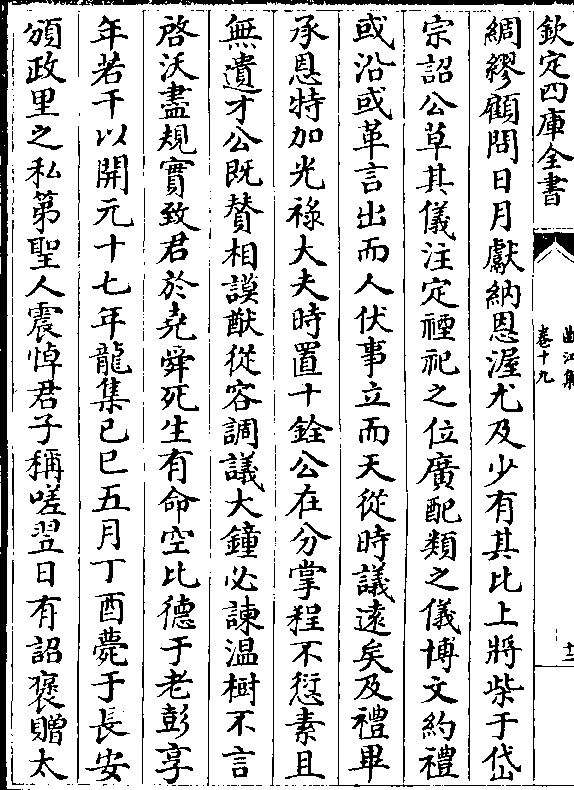 欽定四庫全書
曲江集
卷十九
十二
綢繆顧問日月獻納恩渥尤及少有其比上將柴于岱
宗詔公草其儀注定禋祀之位廣配類之儀博文約禮
或沿或革言出而人伏事立而天從時議遠矣及禮畢
承恩特加光祿大夫時置十銓公在分掌程不愆素且
無遺才公既贊相謨猷從容調議大鐘必諫温樹不言
啓沃盡規實致君於堯舜死生有命空比德于老彭享
年若干以開元十七年龍集己巳五月丁酉薨于長安
頒政里之私第聖人震悼君子稱嗟翌日有詔褒贈太